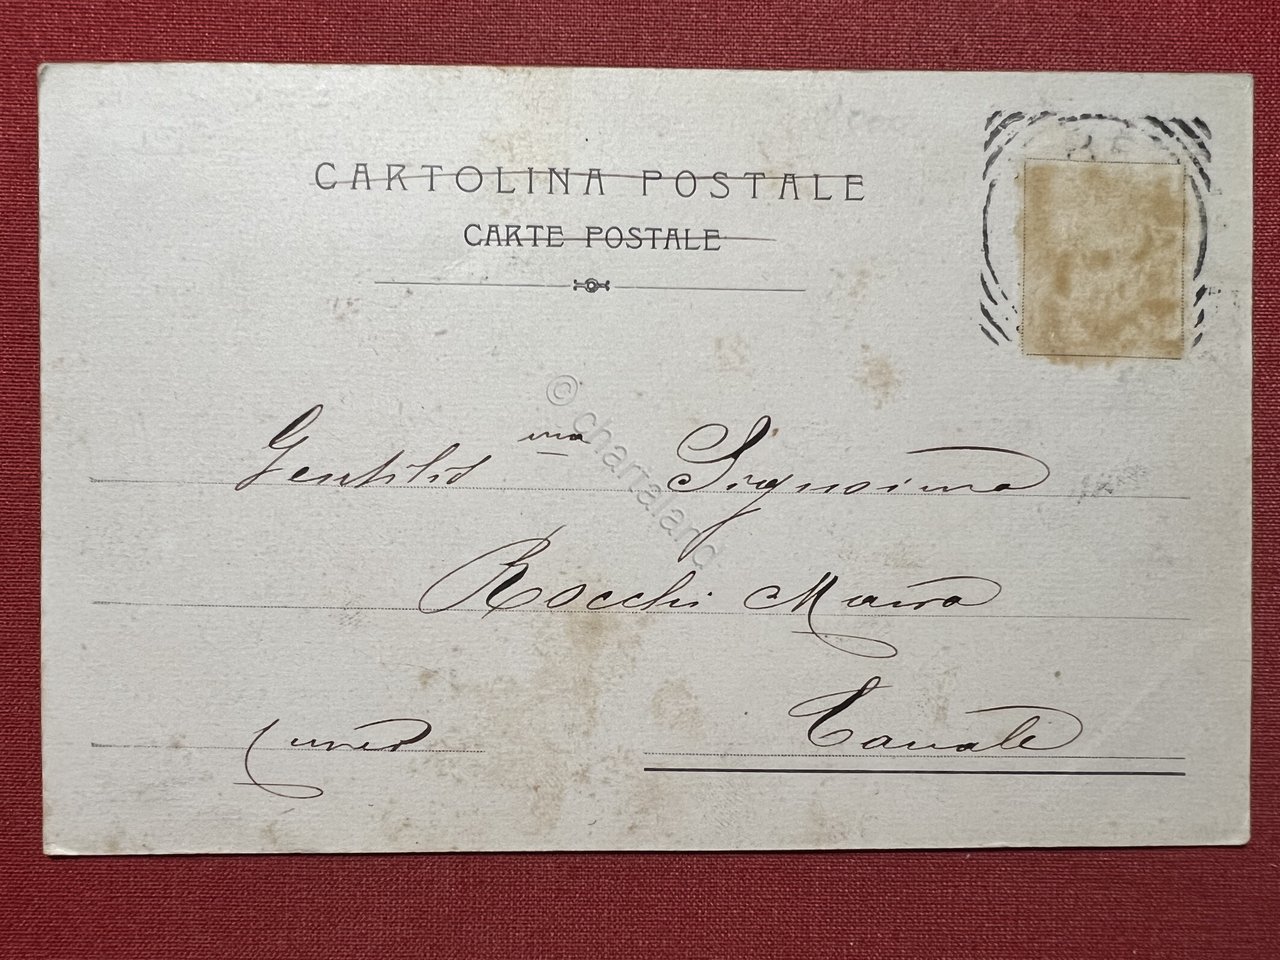 CARTOLINA POSTALE
CARTE POSTALE
© chartaland
Gentil ma Signorina
Rocchi Maria
Canale
(Cuneo)